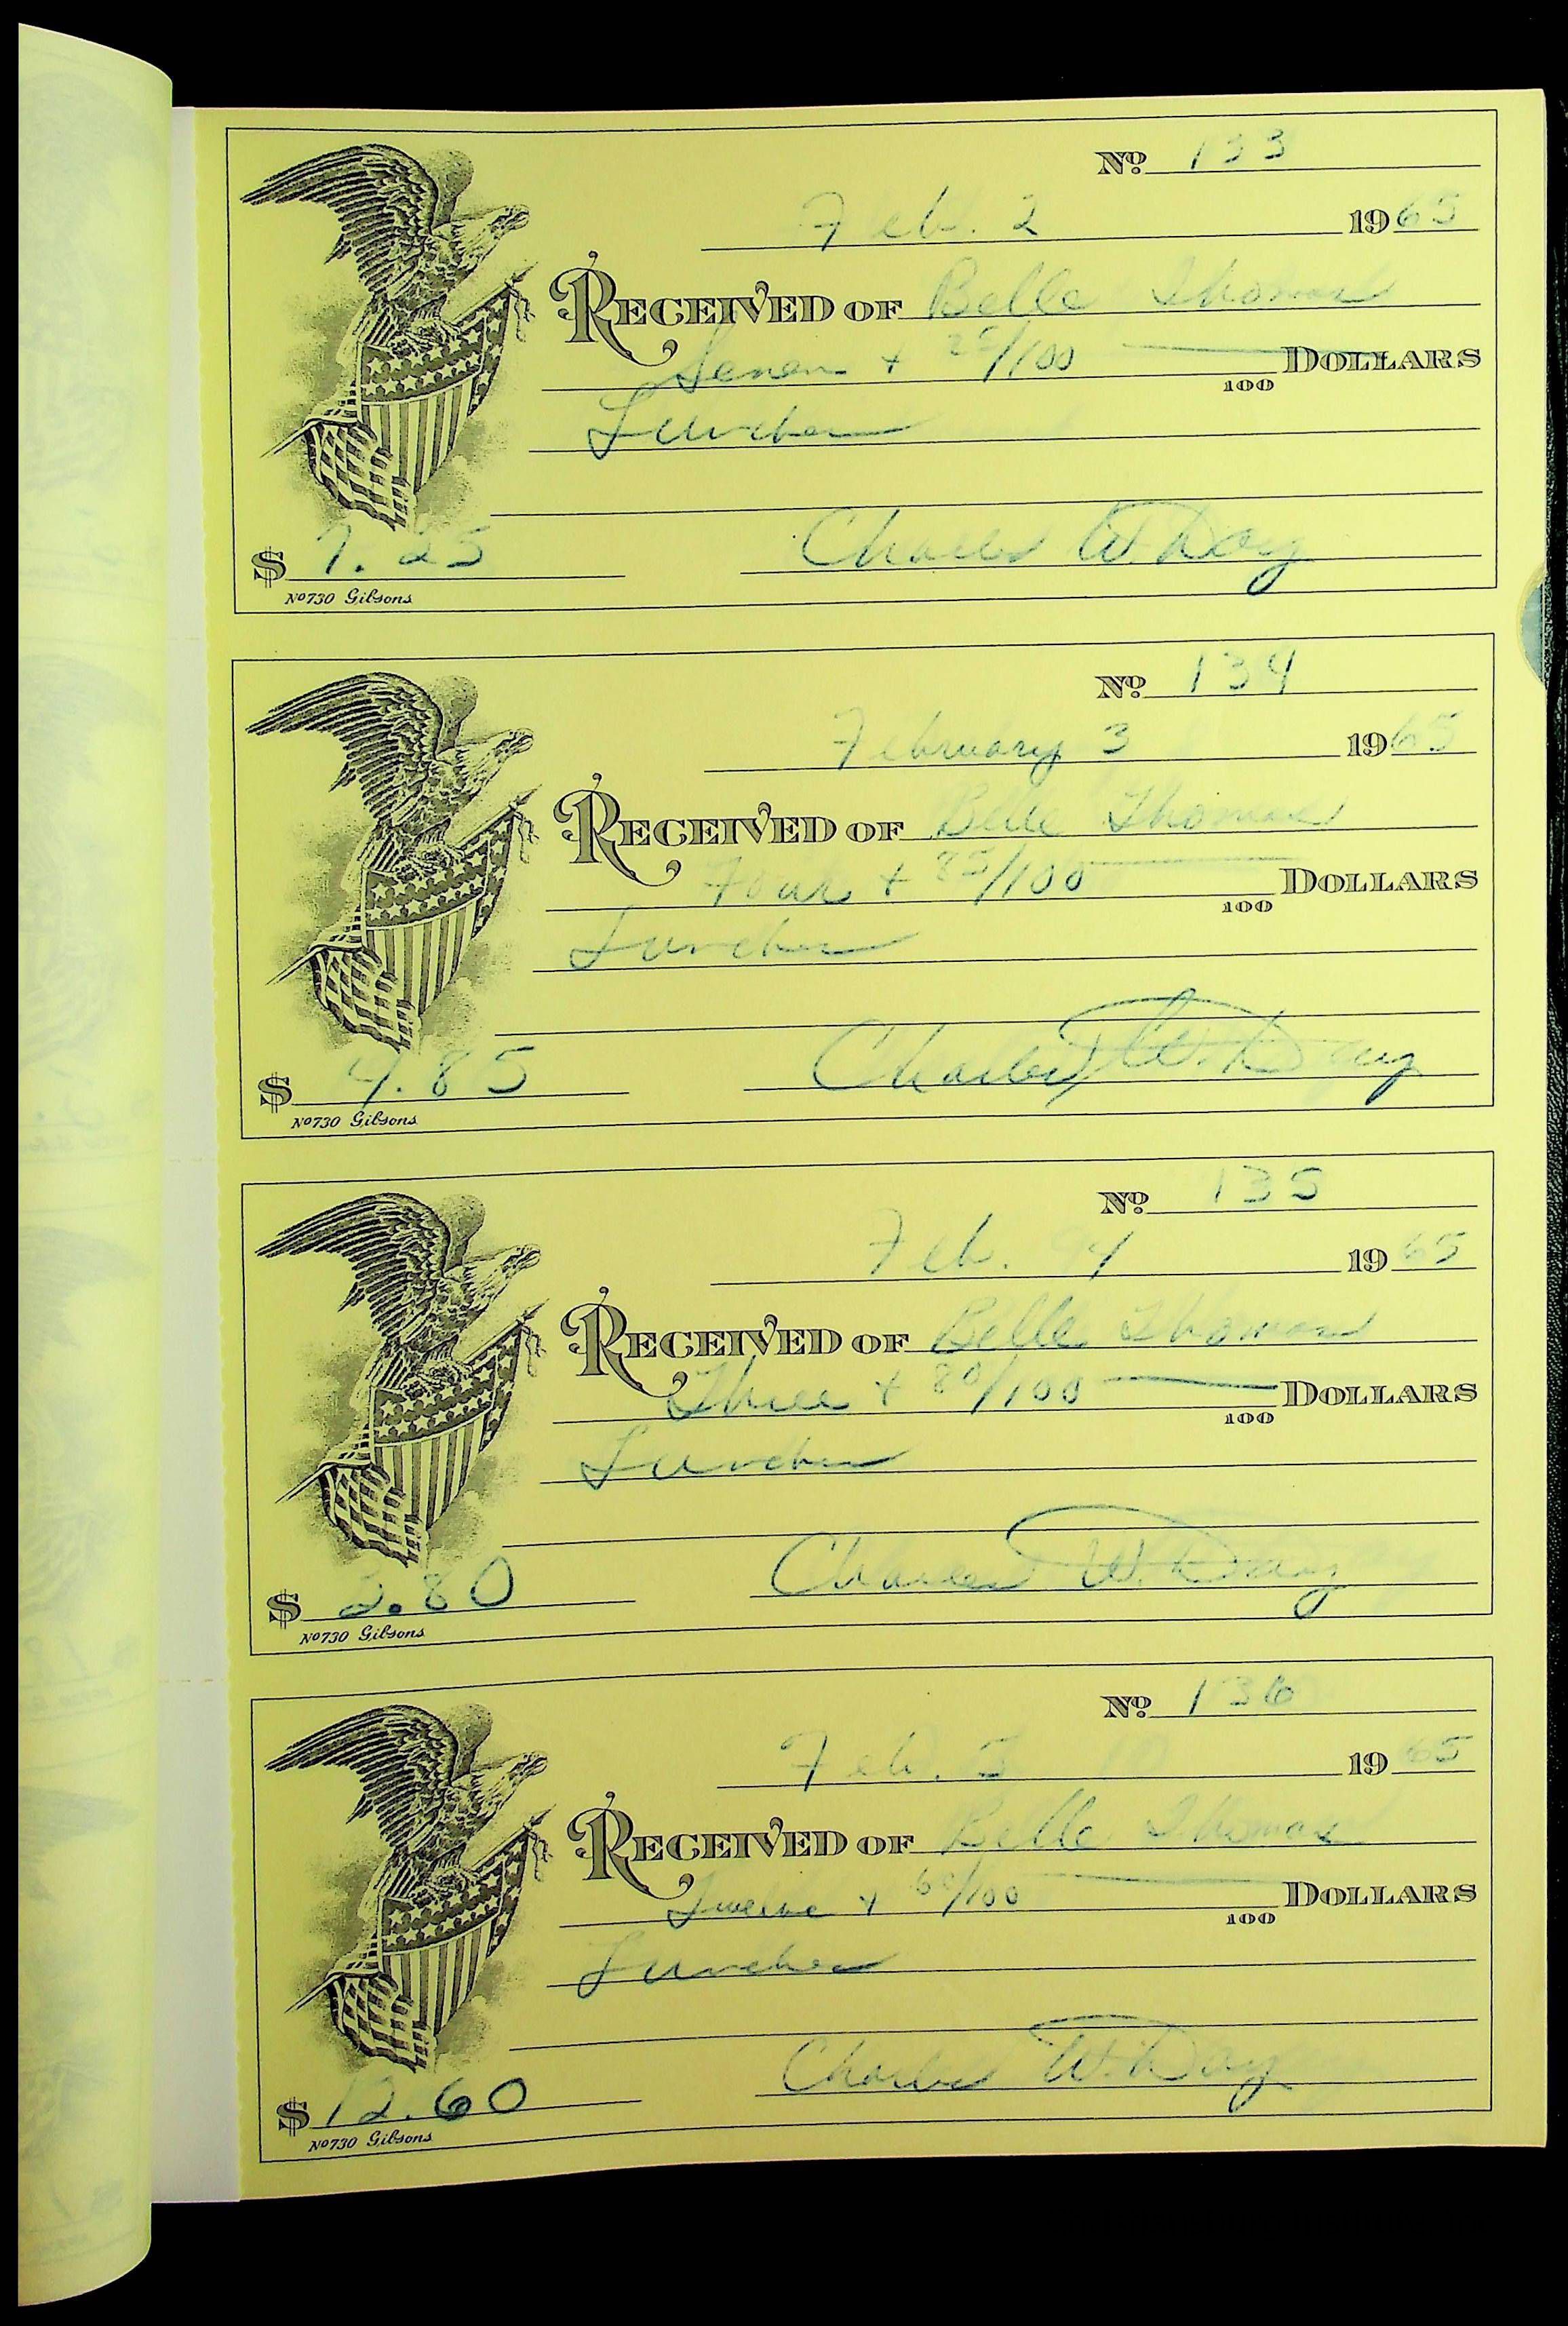 Nº 133
Feb. 2 1965
RECEIVED OF Belle Thomas
Seven + 25/100 DOLLARS
100
Lunches
$ 7.25 Charles W. Day
Nº730 Gibsons
Nº 134
February 3 1965
RECEIVED OF Belle Thomas
Four + 85/100 DOLLARS
100
Lunches
$ 4.85 Charles W. Day
Nº730 Gibsons
Nº 135
Feb. 4 1965
RECEIVED OF Belle Thomas
Three + 80/100 DOLLARS
100
Lunches
$ 3.80 Charles W. Day
Nº730 Gibsons
Nº 136
Feb. 5 1965
RECEIVED OF Belle Thomas
Twelve + 60/100 DOLLARS
100
Lunches
$ 12.60 Charles W. Day
Nº730 Gibsons